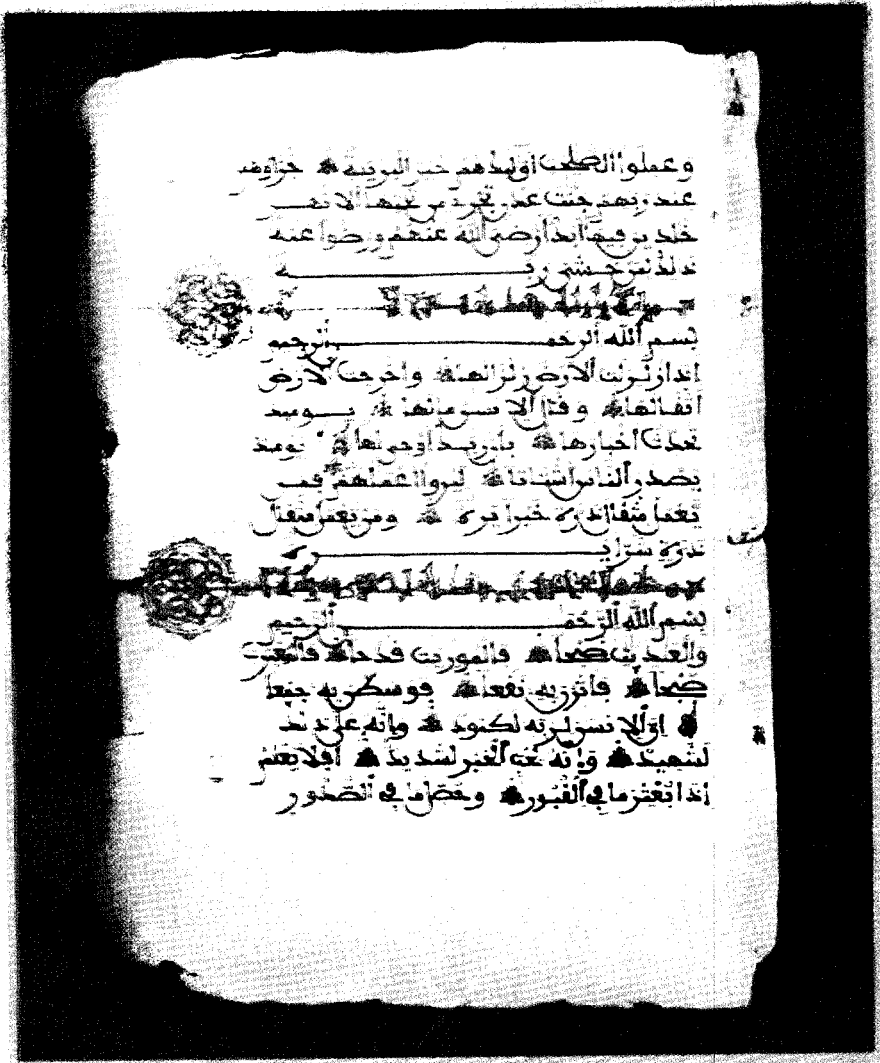 وعملوا الصلحت اوليك هم خير البرية جزاوهم
عند ربهم جنت عدن تجري من تحتها الانهـــر
خلدين فيها ابدا رضي الله عنهم ورضوا عنه
ذلك لمن خشي ربـــــه
بسم الله الرحمــــن الرحيم
اذا زلزلت الارض زلزالها واخرجت الارض
اثقالها وقال الانسن مالها يـــوميذ
تحدث اخبارها بان ربك اوحى لها يوميذ
يصدر الناس اشتاتا ليروا اعملهم فمن
يعمل مثقال ذرة خيرا يره ومن يعمل مثقال
ذرة شرا يـــــره
بسم الله الرحمــــن الرحيم
والعديت ضبحا فالموريت قدحا فالمغيرت
صبحا فاثرن به نقعا فوسطن به جمعا
ان الانسن لربه لكنود وانه على ذلك
لشهيد وانه لحب الخير لشديد افلا يعلم
اذا بعثر ما في القبور وحصل ما في الصدور